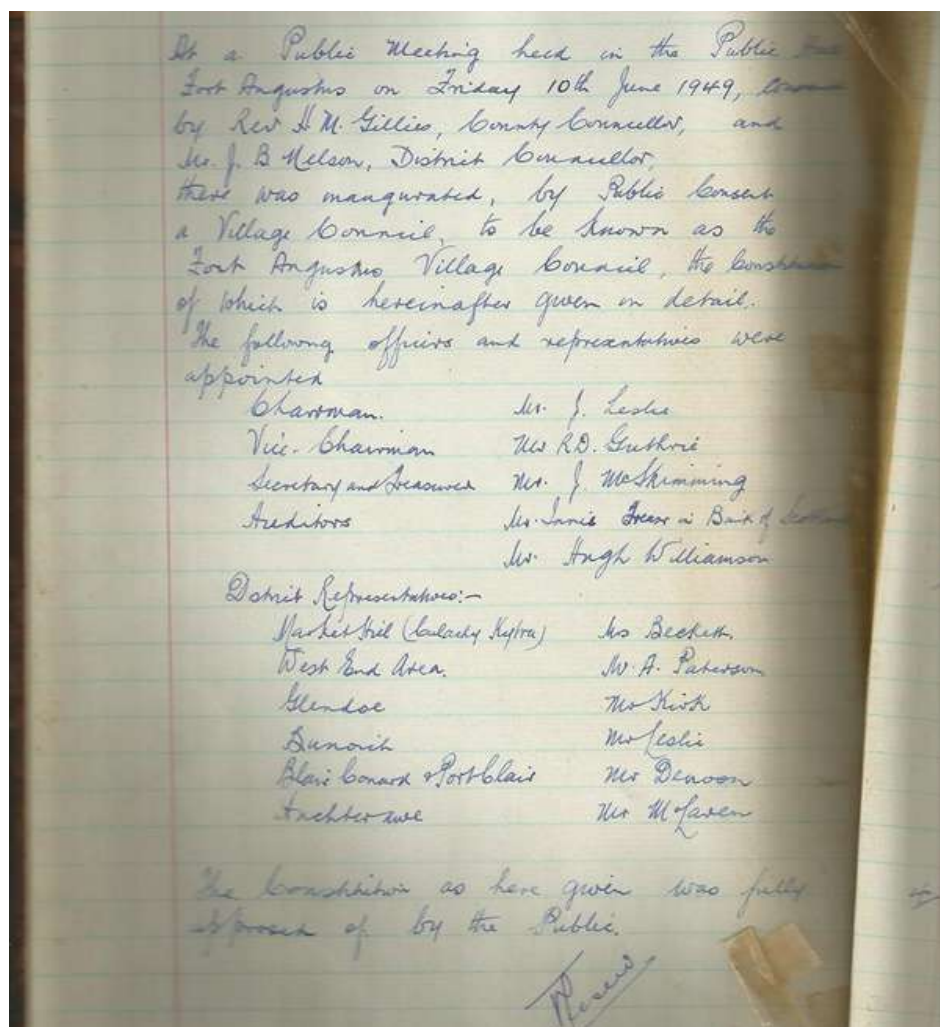 At a Public Meeting held in the Public
Fort Augustus on Friday 10th June 1949,
by Rev H. M. Gillies, County Councellor, and
Mr. J. B Nelson, District Councellor,
there was inaugurated, by Public Consent
a Village Council, to be known as the
Fort Augustus Village Council, the Constitution
of which is hereinafter given in detail.
The following officers and representatives were
appointed
Chairman. Mr. J. Leslie
Vice-Chairman Mr R.D. Guthrie
Secretary and Treasurer Mr. J. McSkimming
Auditors Mr. Innis Bank of Scotland
Mr. Hugh Williamson
District Representatives:-
Market Hill (Culachy Kytra) Mrs Beckett.
West End Area. Mr. A. Paterson
Glendoe Mr Kirk
Bunoich Mr Leslie
Blair Conard & Port Clair Mr Denoon
Auchterawe Mr McLaren
The Constitution as here given was fully
approved of by the Public.